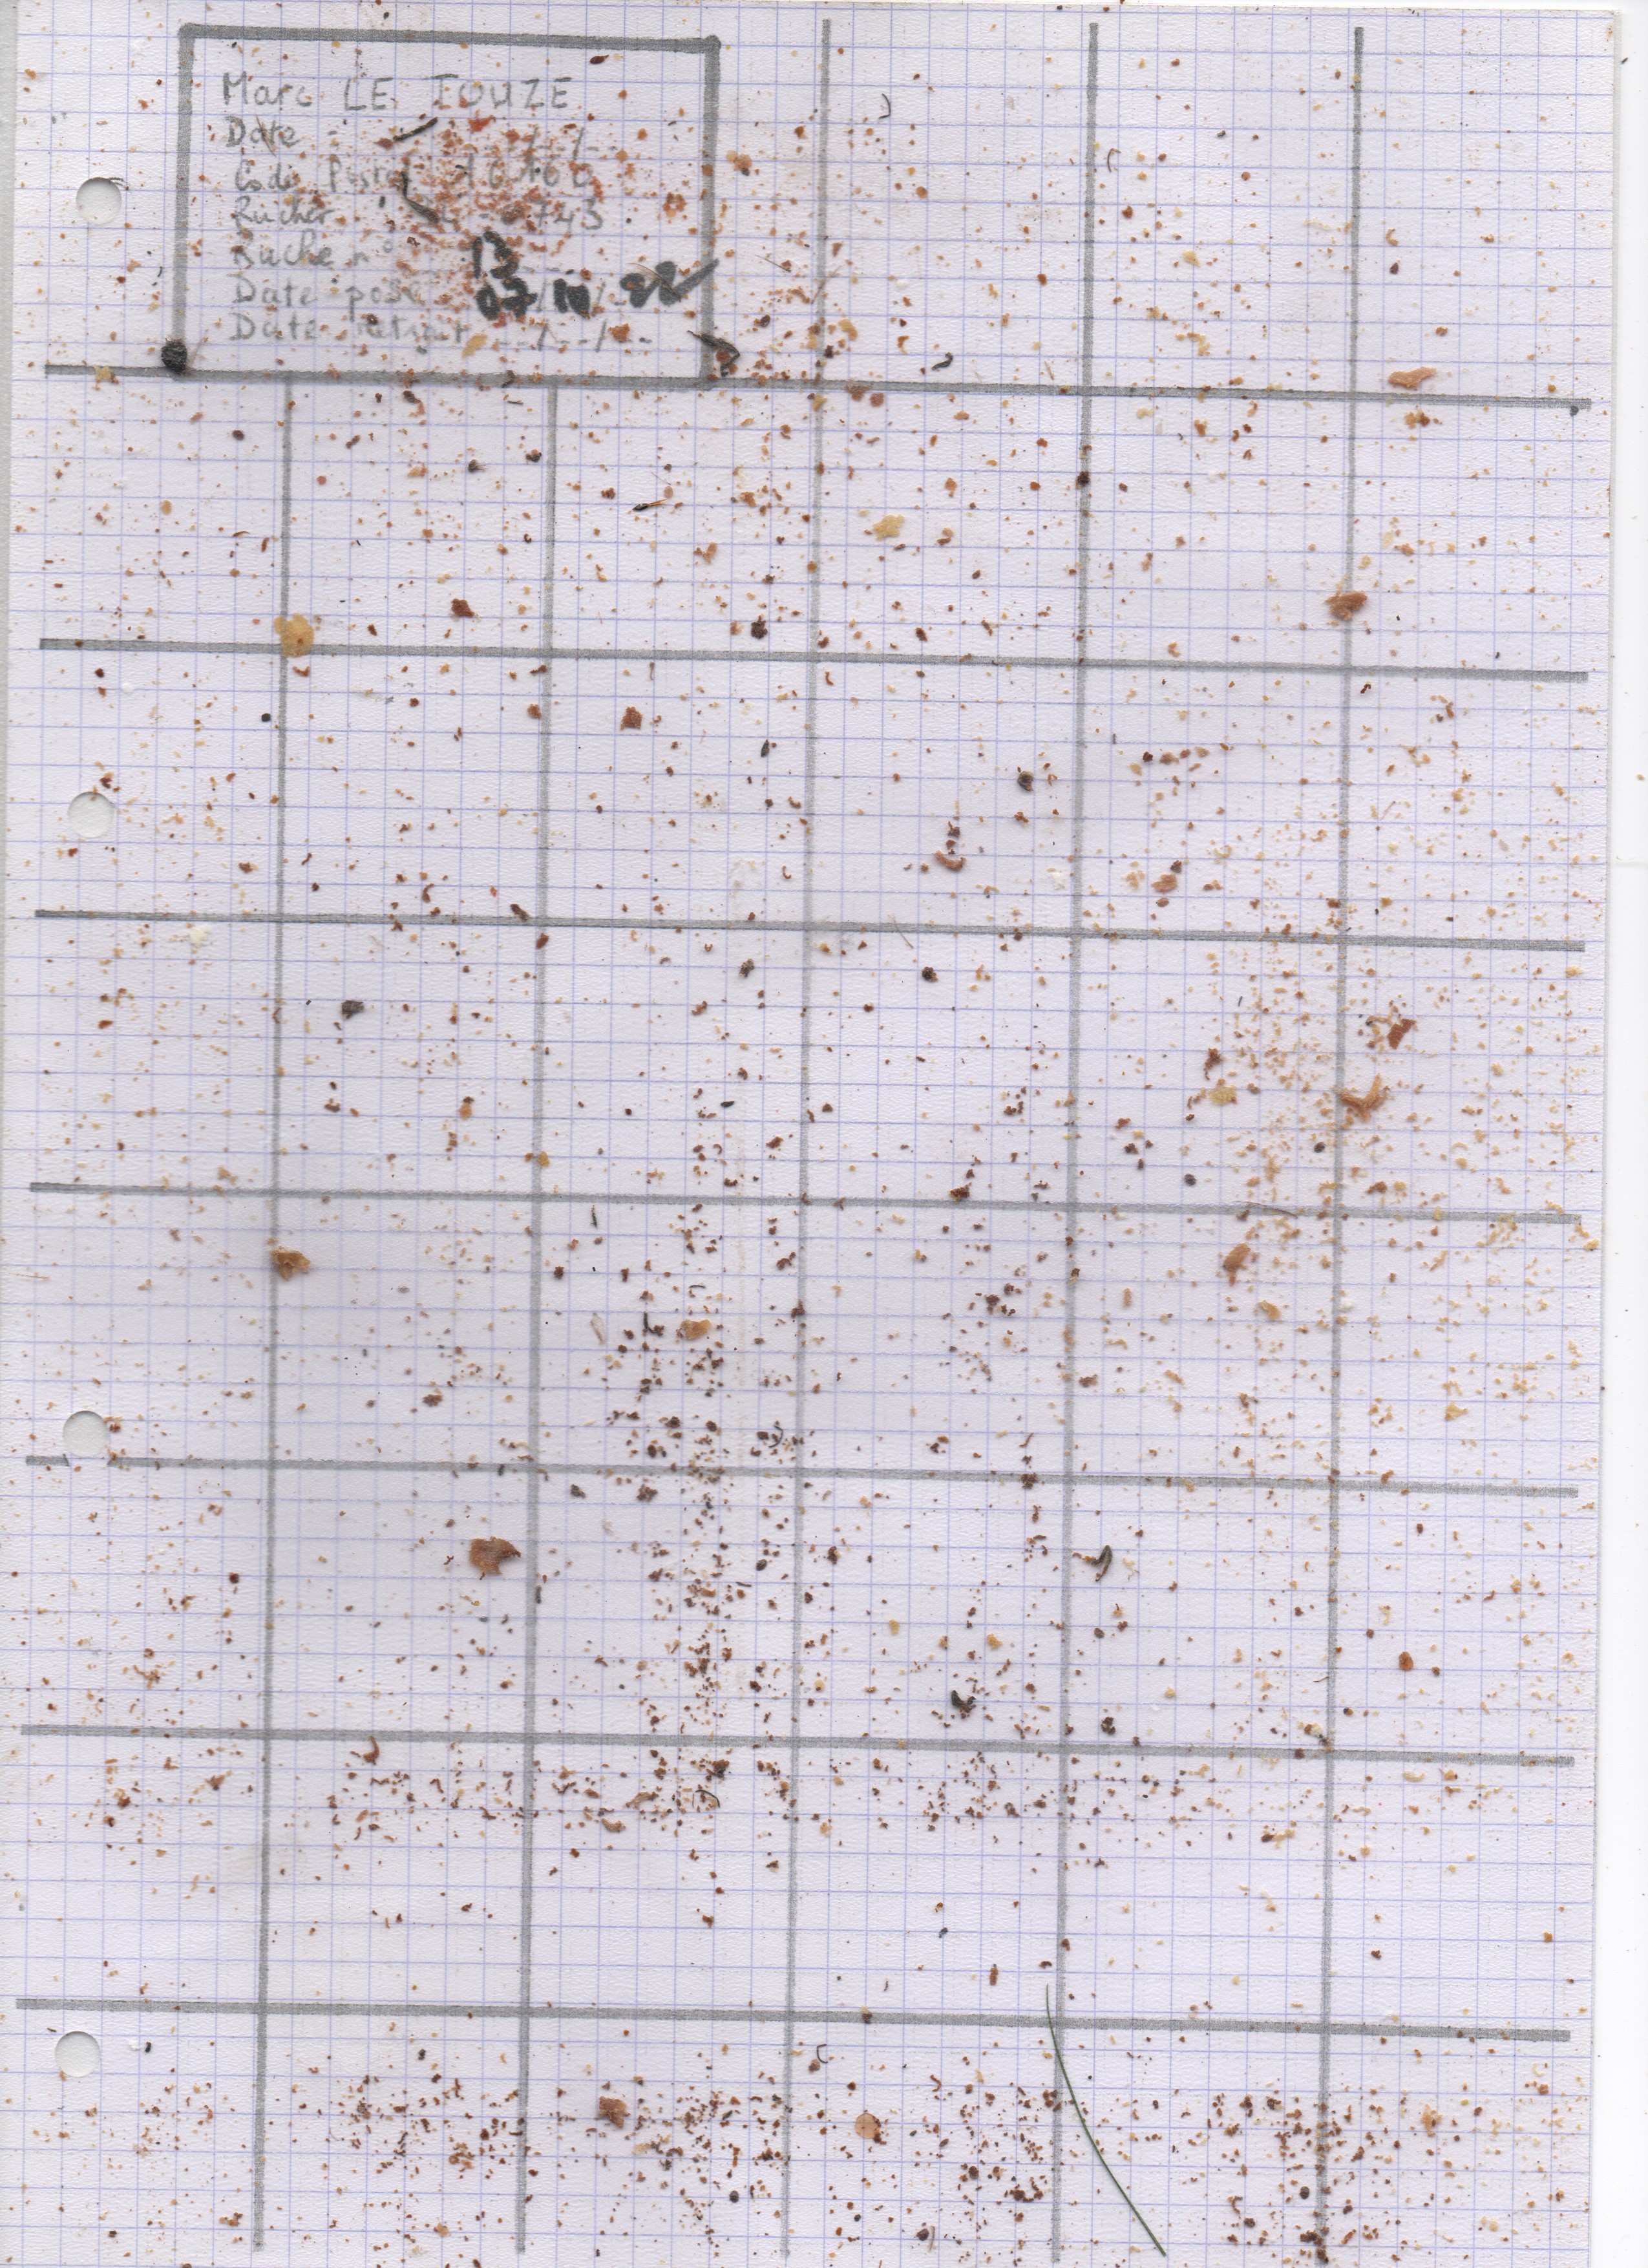 Marc LE TOUZE
Date - _ _/_ _/_ _
Code Postal
Rucher 743
Ruche n° 13
Date pose 07/10/22
Date retrait _ _/_ _/_ _